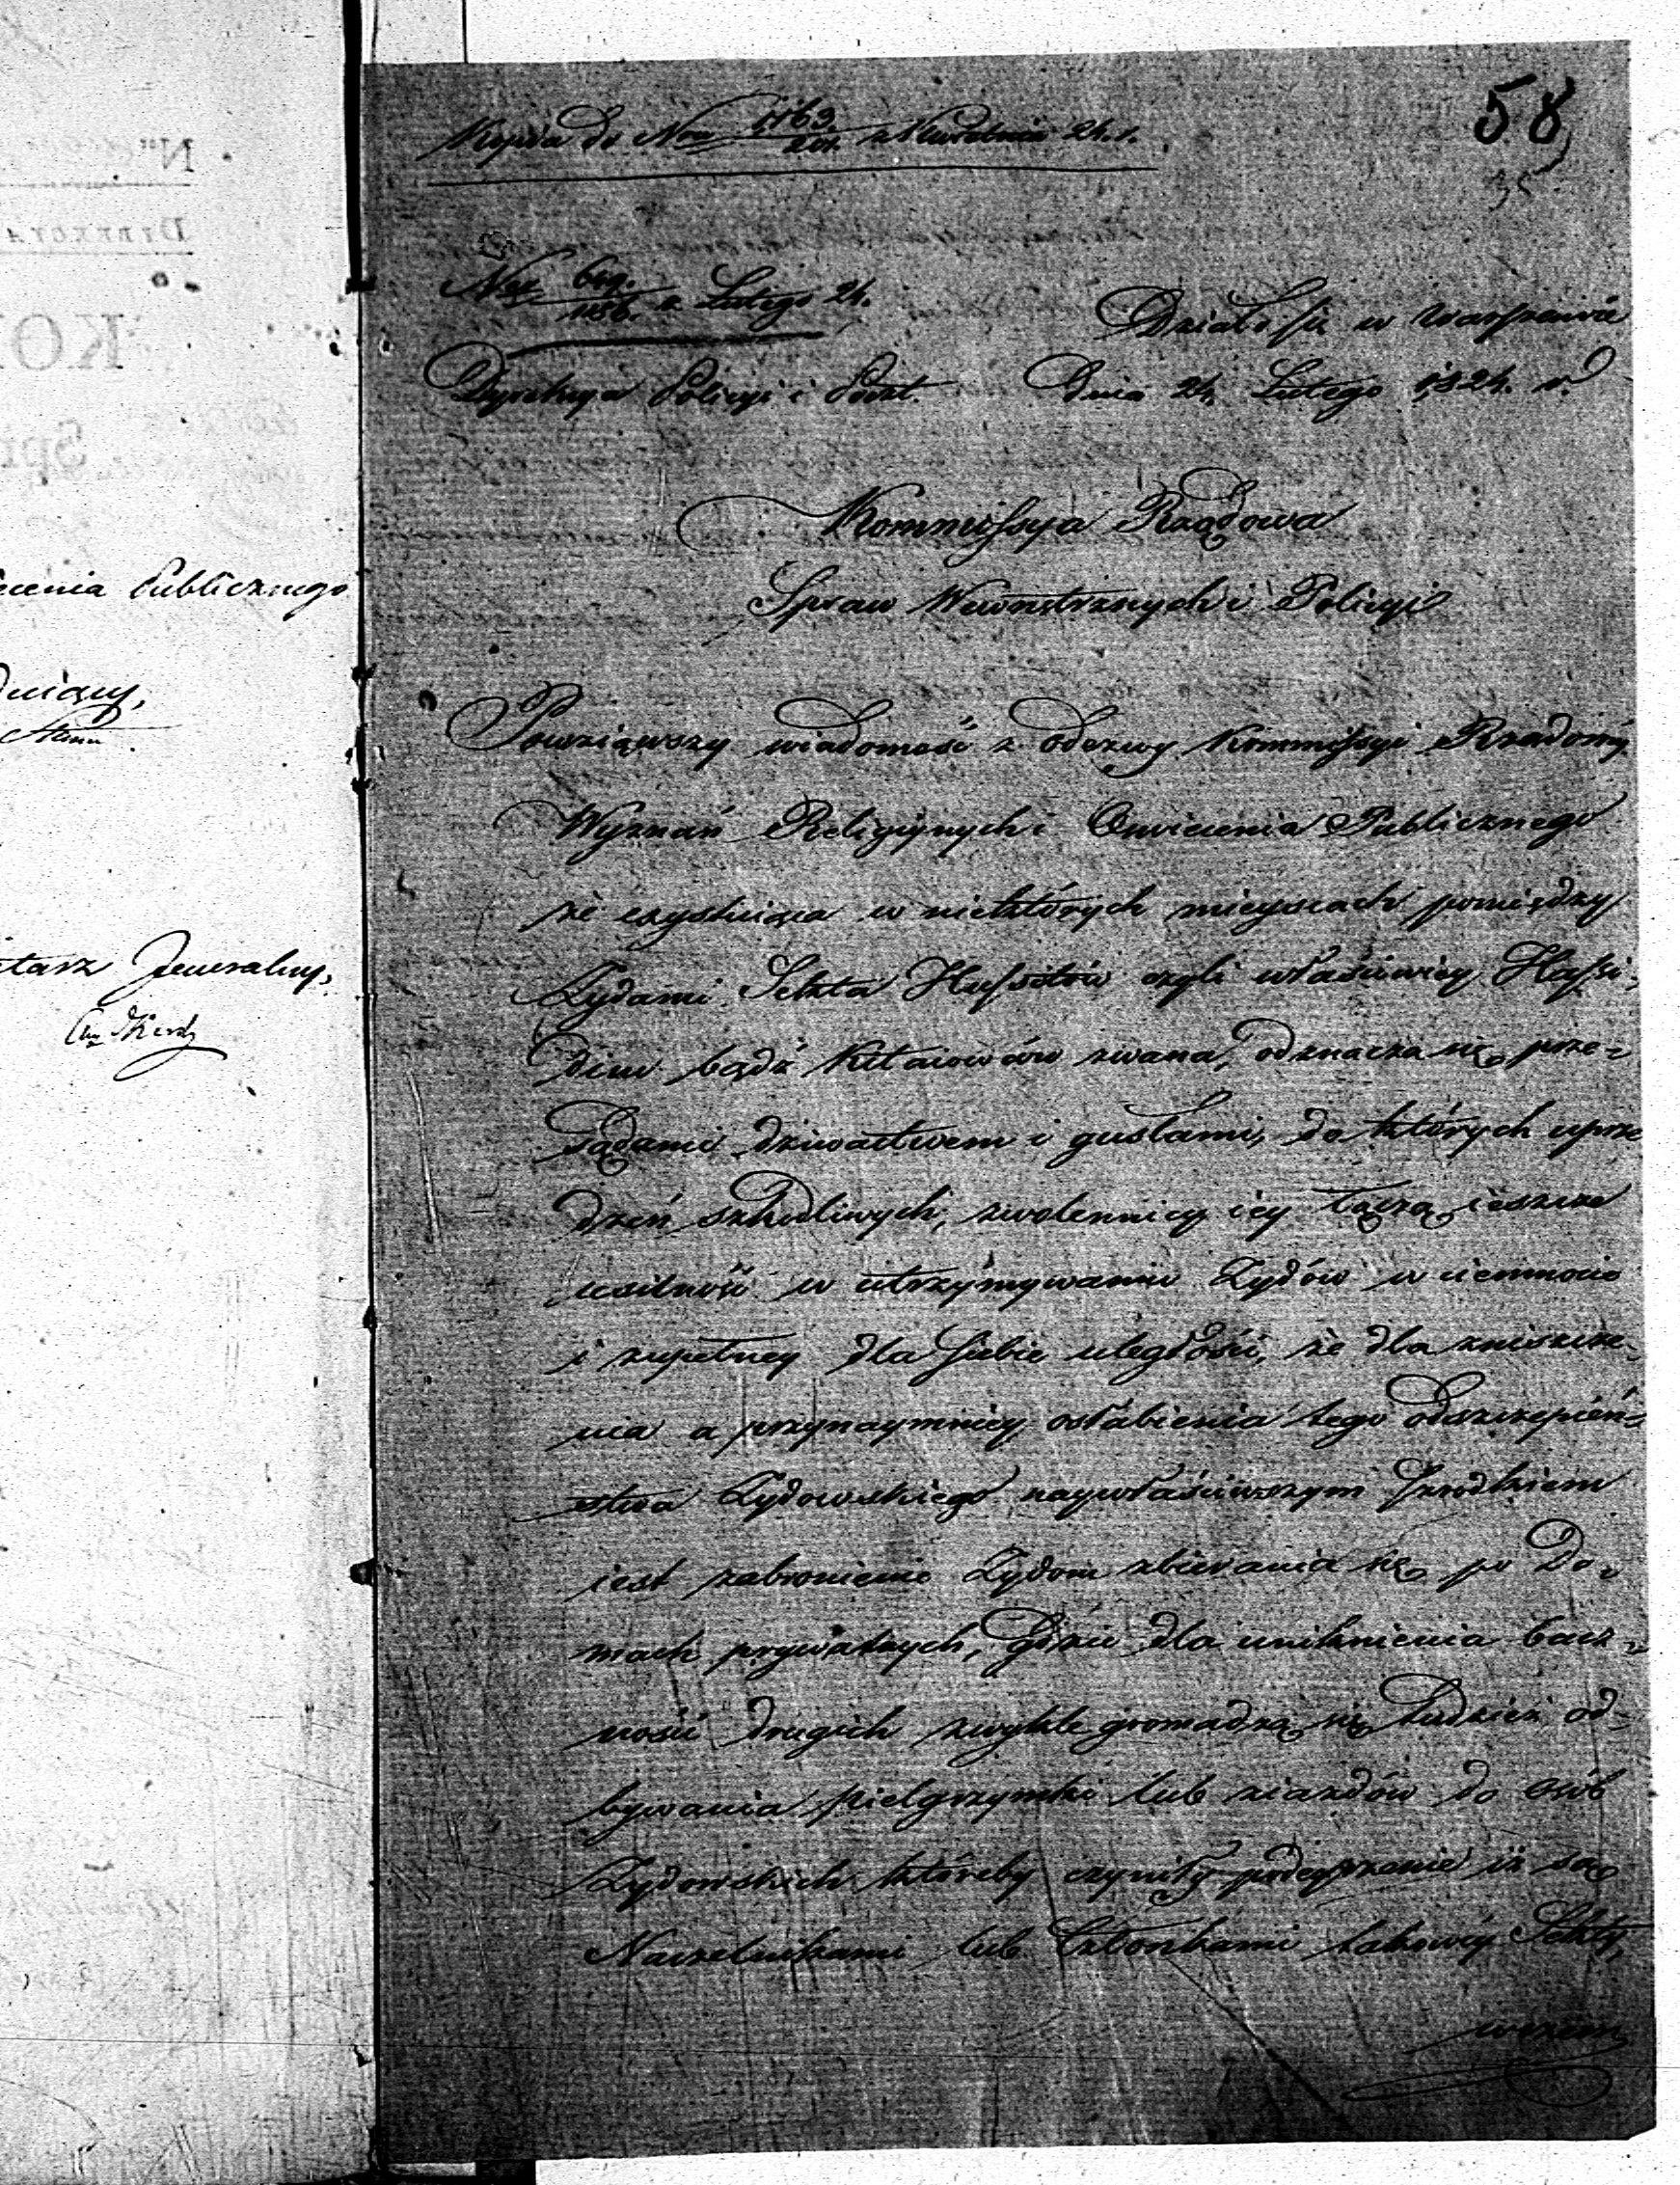 Nr
DYREKCYA
KO
Spr
cenia Publicznego
dniczy,
tarz Jeneralny,
58
Kopia do Nru 1163 z Kwietnia 24. r.
Ner 619. z Lutego 24.
1286.
Działo się w Warszawie
Dyrekcya Policyi i Poczt. Dnia 24. Lutego 1824. r.
Kommissya Rządowa
Spraw Wewnętrznych i Policyi
Powziąwszy wiadomość z odezwy Kommissyi Rządowéy
Wyznań Religiynych i Oświecenia Publicznego
że exystuiąca w niektórych mieyscach pomiędzy
Żydami Sekta Hussytów czyli właściwiey Hassi-
dim bądź Kitaiowców zwana, odznacza się prze-
sądami dziwactwem i gusłami, do których uprze
dzeń szkodliwych, zwolennicy iey łączą ieszcze
usilność w utrzymywaniu Żydów w ciemnocie
i zupełney dla siebie uległości, że dla zniszcze-
nia a przynaymniey osłabienia tego odszczepień-
stwa Żydowskiego naywłaściwszym śrzodkiem
iest zabronienie Żydom zbierania się po Do-
mach prywatnych, gdzie dla uniknienia bacz-
ności drugich zwykle gromadzą się tudzież od-
bywania pielgrzymki lub ziazdów do osób
Żydowskich któreby czyniły podeyrzenie iż są
Naczelnikami lub Członkami takowéy Sekty,
wezem